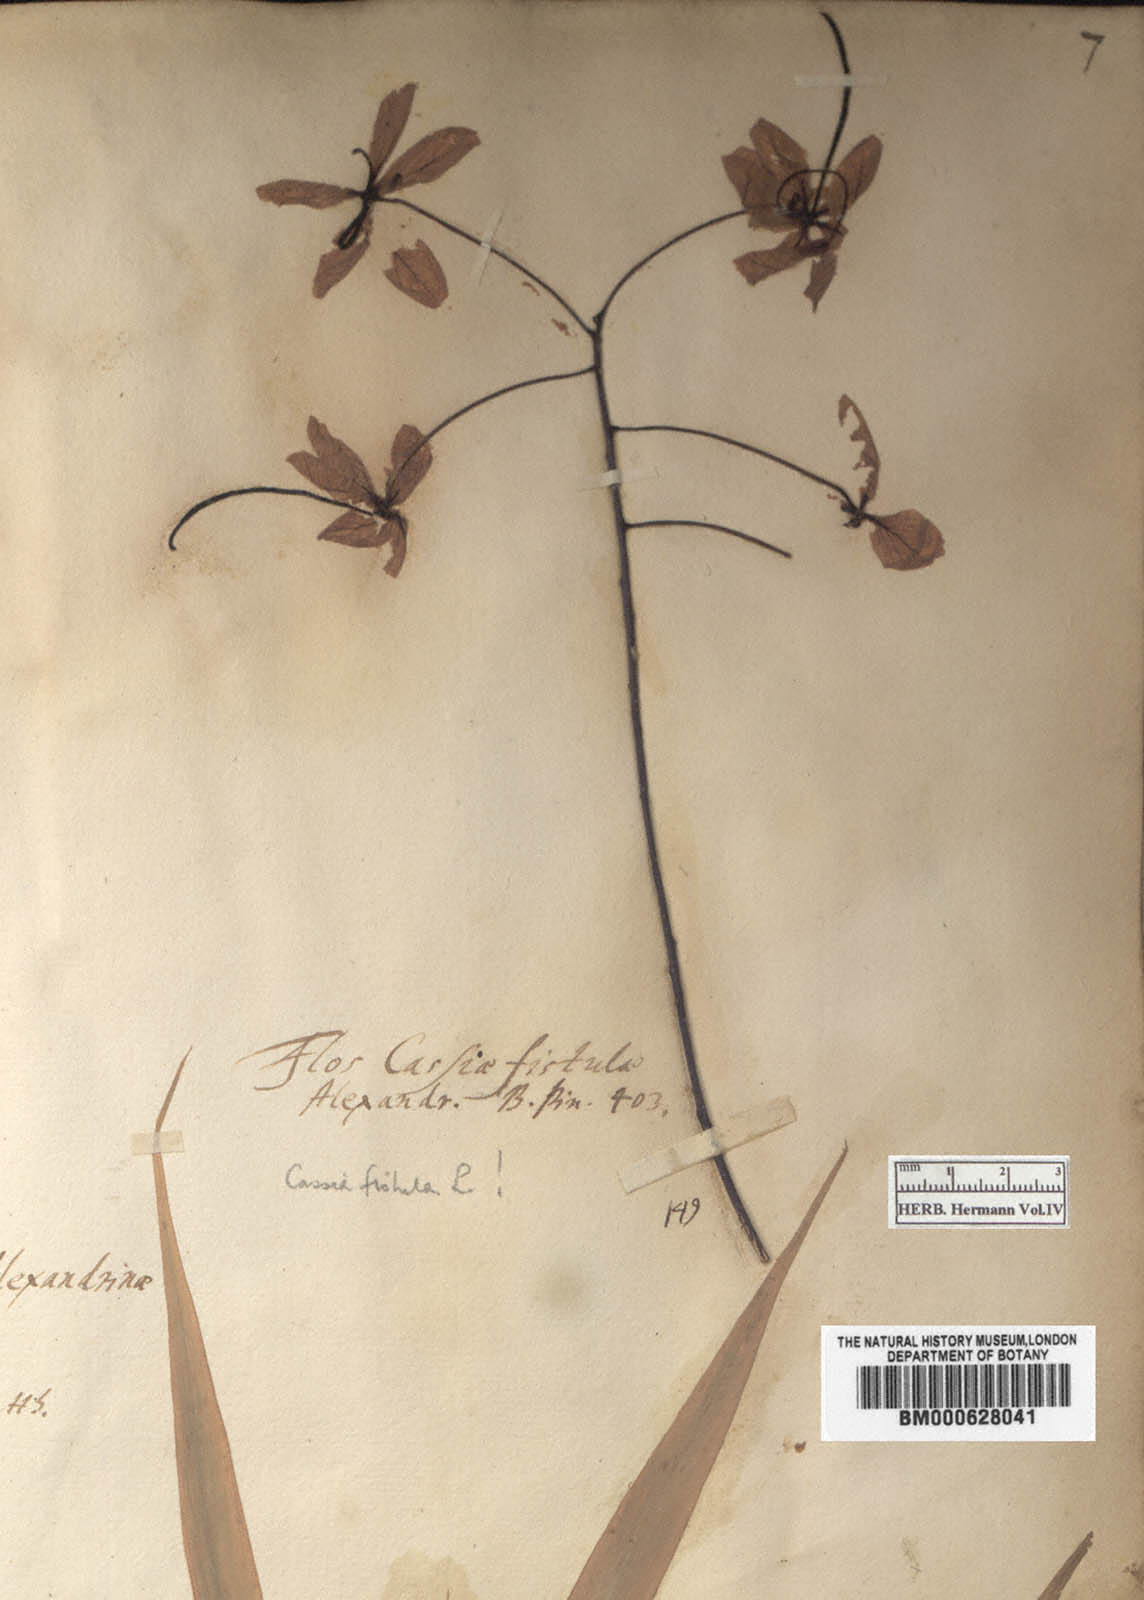 7
Flos Cassiæ fistulæ
Alexandr. B. Pin. 403.
Cassia fistula L. !
149
lexandrinæ
H5.
mm 1 2 3
HERB. Hermann Vol.IV
THE NATURAL HISTORY MUSEUM,LONDON
DEPARTMENT OF BOTANY
BM000628041